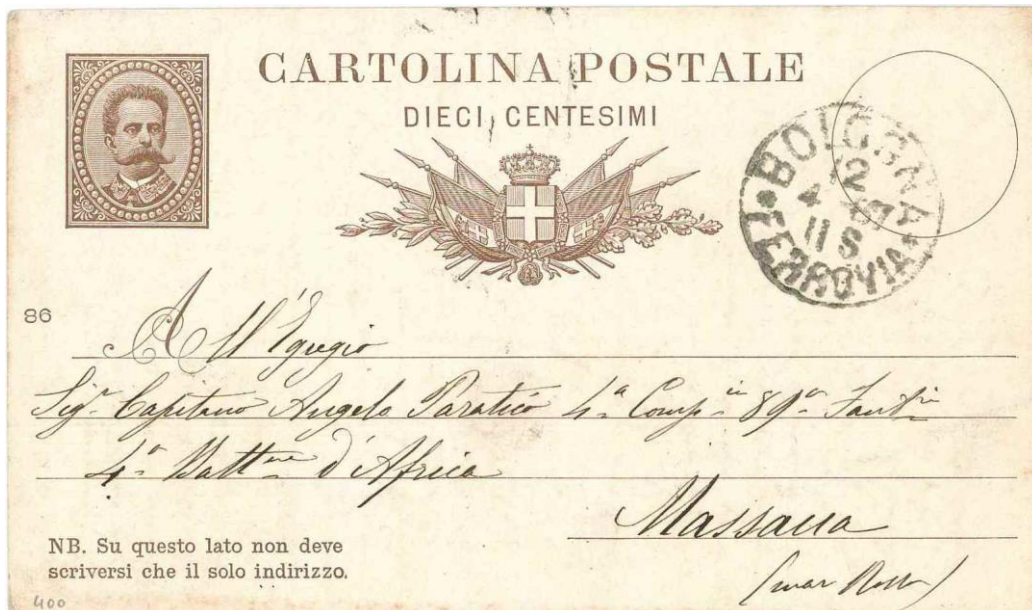 CARTOLINA POSTALE
DIECI CENTESIMI
BOLOGNA
12
4
11 S
FERROVIA
86
All'Egregio
Sigr. Capitano Angelo Paratico 4a Compia 89o Fantria
4o Battne d'Africa
Massaua
(mar Rosso)
NB. Su questo lato non deve
scriversi che il solo indirizzo.
400